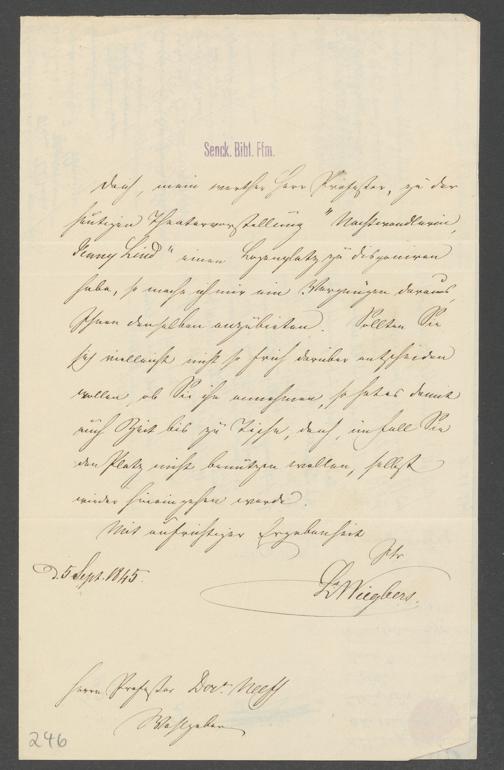 Senck. Bibl. Ffm.
Da ich, mein werther Herr Professor, zu der
heutigen Theatervorstellung "Nachtwandlerin,
Jenny Lind" einen Logenplatz zu disponiren
habe, so mache ich mir ein Vergnügen daraus,
Ihnen denselben anzubieten. Sollten Sie
sich vielleicht nicht so früh darüber entscheiden
wollen, ob Sie ihn annehmen, so hat es damit
auch Zeit bis zu Tische, da ich, im Fall Sie
den Platz nicht benützen wollen, selbst
wieder hineingehen werde.
Mit aufrichtiger Ergebenheit
Ihr
D. 5 Sept. 1845.
Wiegbers.
Herrn Professor Neeff
Wohlgeboren
246